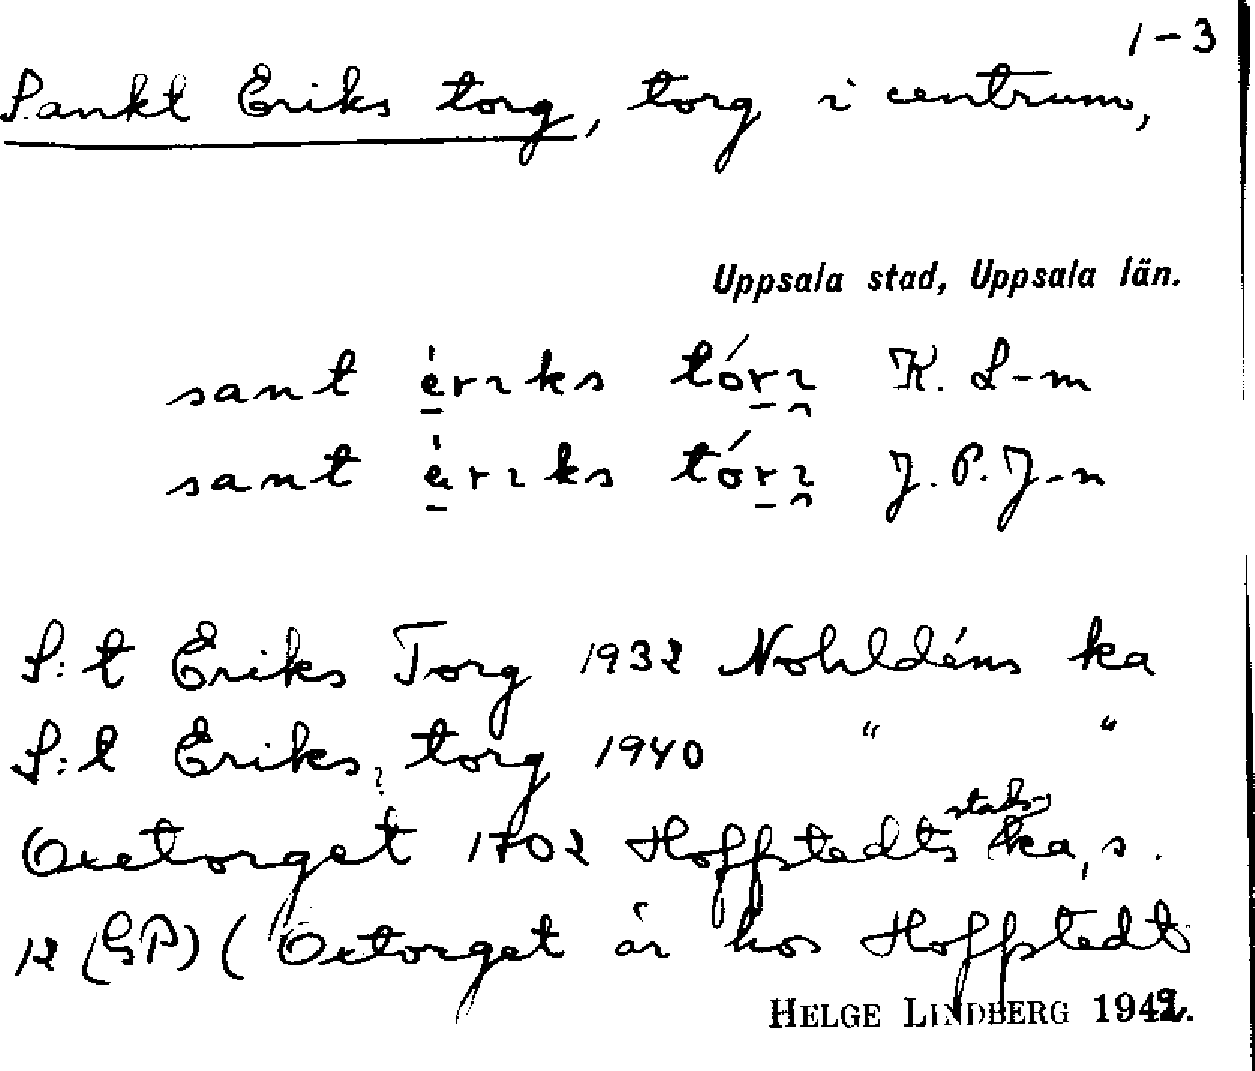 1-3
Sankt Eriks torg, torg i centrum,
Uppsala stad, Uppsala län.
sant K. L-m
sant J. P. J-n
S:t Eriks Torg 1932 Nohldéns ka
S:t Eriks torg 1940 " "
Oxetorget 1702 Hoffstedts stads- ka, s.
12 (GP) (Oxtorget är hos Hoffstedt
HELGE LINDBERG 1942.